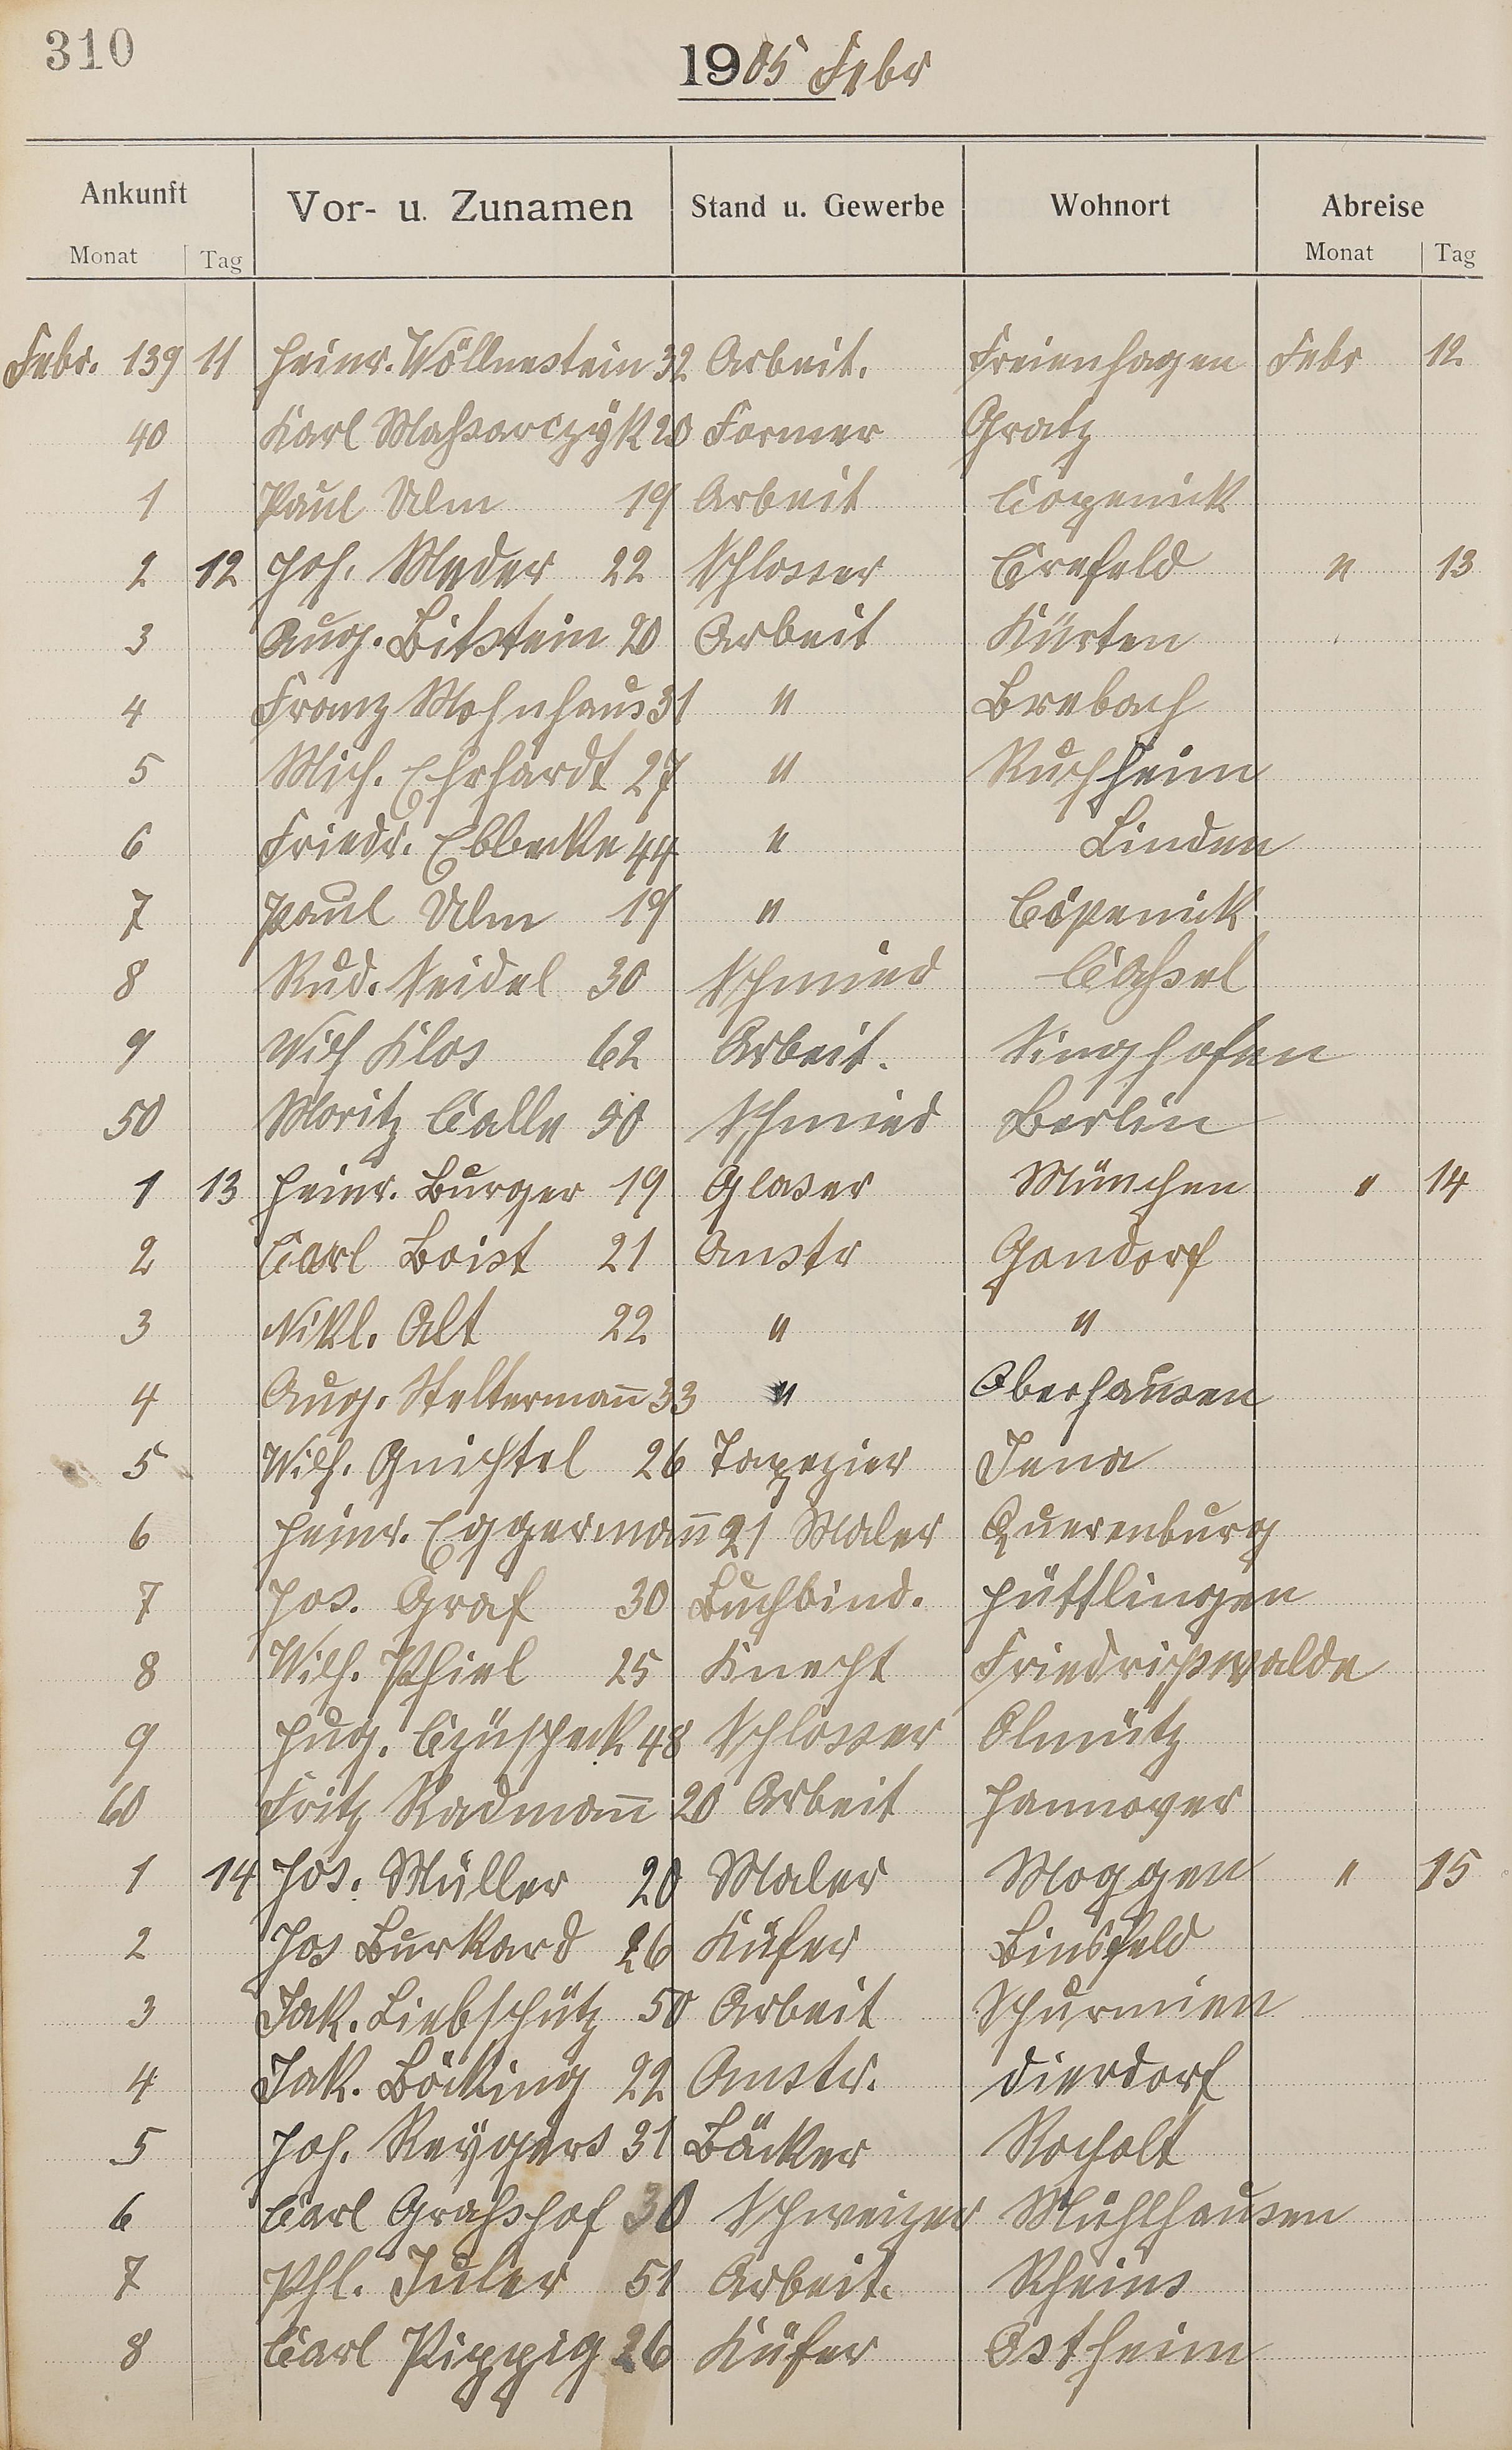 310
1905 Febr
Ankunft Vor- u. Zunamen Stand u. Gewerbe Wohnort Abreise
Monat Tag Monat Tag
Febr. 139 11 Heinr. Wöllnestein 32 Arbeit. Freienhagen Febr 12
40 Karl Maßarczÿk 20 Former Gratz
1 Paul Ulm 19 Arbeit Cöpenick
2 12 Joh. Meder 22 Schlosser Crefeld " 13
3 Aug. Bitstein 20 Arbeit Kürten
4 Franz Mohnhaus 31 " Brebach
5 Mich. Ehrhardt 27 " Ruchheim
6 Friedr. Ebbecke 44 " Linden
7 Paul Ulm 19 " Cöpenick
8 Rud. Seidel 30 Schmied Caßel
9 Wilh Klos 62 Arbeit. Singhofen
50 Moritz Calle 50 Schmied Berlin
1 13 Heinr. Burger 19 Glaser München " 14
2 Carl Boist 21 Anstr Gondorf
3 Nikl. Alt 22 " "
4 Aug. Steltermann̅ 33 " Oberhausen
5 Wilh. Gnichtel 26 Tapezier Jena
6 Heinr. Eggerman̅ 21 Maler Querenburg
7 Jos. Graf 30 Buchbind. Hüttlingen
8 Wilh. Thiel 25 Knecht Friedrichswalde
9 Hug. 48 Schlosser Olmütz
60 Fritz Radman̅ 20 Arbeit Hannover
1 14 Jos. Müller 20 Maler Moggen " 15
2 Jos Burkard 26 Küfer Binsfeld
3 Jak. Liebschütz 50 Arbeit
4 Jak. Böcking 22 Anstr. Dierdorf
5 Joh. Reÿgers 31 Bäcker
6 Carl Graßhof 30 Schweizer Mühlhausen
7 Phl. Juler 51 Arbeit. Rheins
8 Carl Pippig 26 Küfer Ostheim